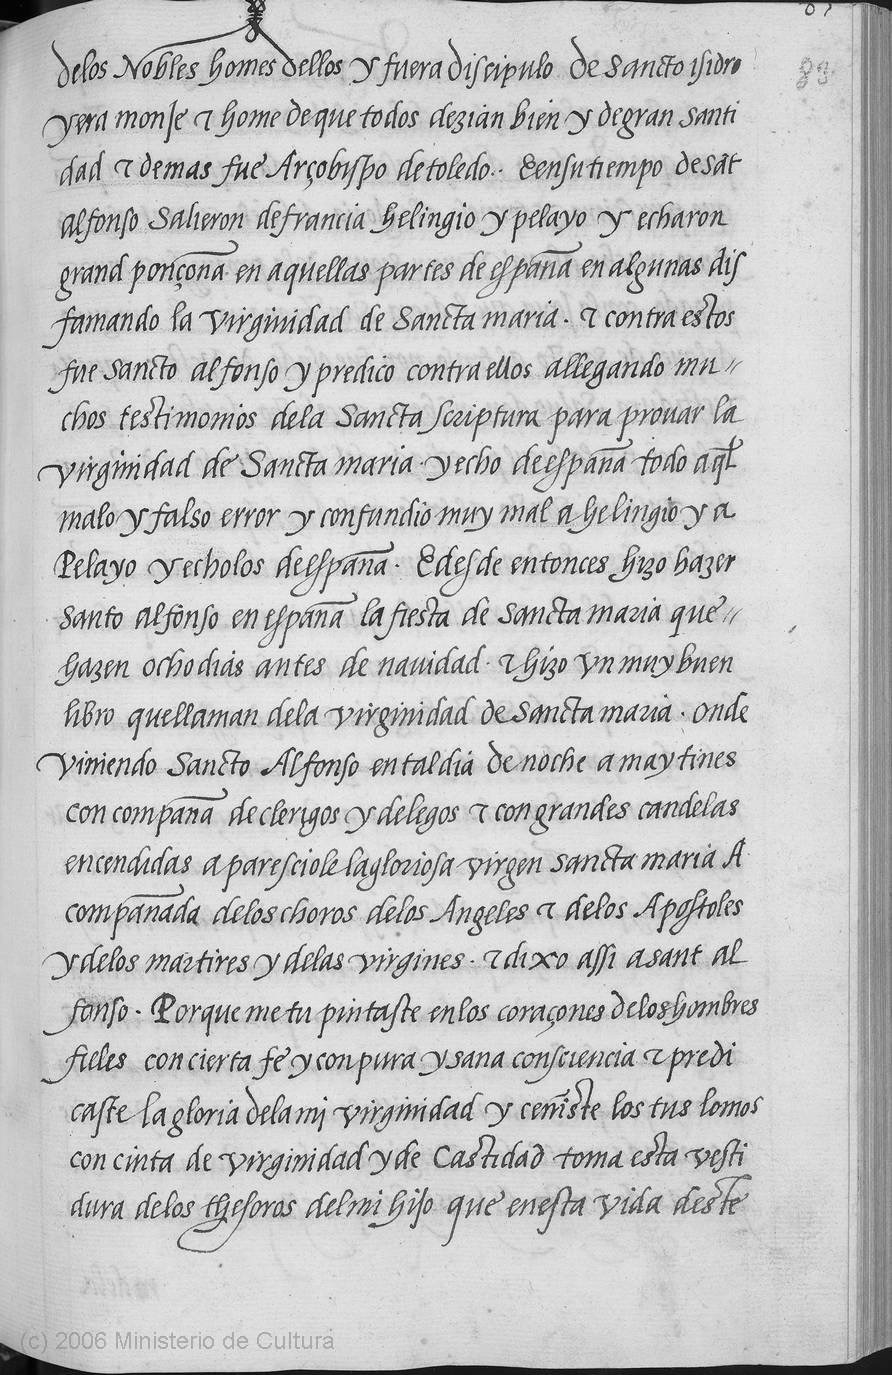 83
delos Nobles homes dellos y fuera discipulo de Sancto isidro
y era monJe τ home de que todos dezian bien y de gran santi
dad τ demas fue Arçobispo de toledo·· E en su tiempo de sāt
alfonso Salieron de francia helingio y pelayo y echaron
grand ponçoña en aquellas partes de españa en algunas dis
famando la virginidad de Sancta maria· τ contra estos
fue Sancto alfonso y predico contra ellos allegando mu〃
chos testimonios dela Sancta scriptura para prouar la
virginidad de Sancta maria· y echo de españa todo aq̄l
malo y falso error y confundio muy mal a helingio y a
Pelayo y echolos de españa· E desde entonces hizo hazer
Santo alfonso en españa la fiesta de Sancta maria que〃
hazen ocho dias antes de nauidad· τ hizo vn muy buen
libro que llaman dela virginidad de Sancta maria· onde
viniendo Sancto Alfonso en tal dia de noche a maytines
con compaña de clerigos y delegos τ con grandes candelas
encendidas aparesciole la gloriosa virgen Sancta maria A
compañada delos choros delos Angeles τ delos Apostoles
y delos martires y delas virgines· τ dixo assi a sant al
fonso· Porque me tu pintaste en los coraçones delos hombres
fieles con cierta fe y con pura y sana consciencia τ predi
caste la gloria dela mj virginidad y ceñiste los tus lomos
con cinta de virginidad y de Castidad toma esta vesti
dura delos thesoros del mi hijo que en esta vida deste
(c) 2006 Ministerio de Cultura